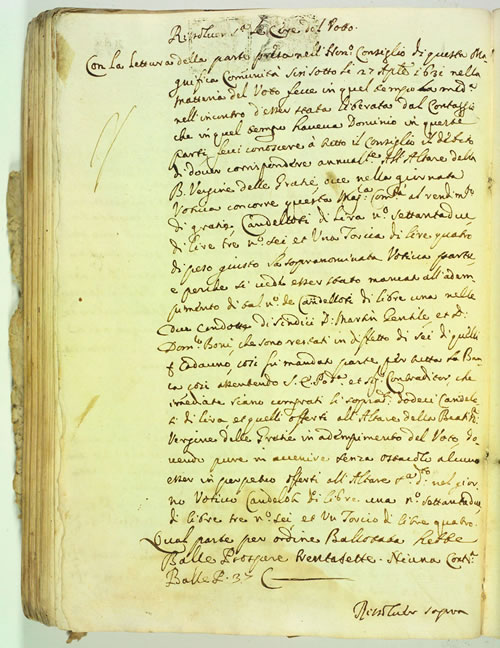 Risolver sop.ª Le Cere del Voto.
Con la lettura della parte presa nell'Hon.º Consiglio di questa Ma
gnifica Comunità sin sotto li 27 Aple 1631 nella
materia del Voto fece in quel tempo la med.ª
nell'incontro d'esser stata liberata dal Contaggio
che in quel tempo haveva Dominio in queste
parti, feci conoscere à tutto il Consiglio il debito
di dover corrispondere annual.te All'Altare della
B. Vergine delle Gratie, ove nella giornata
Votiva concorre questa Mag.ca Com.tà al rendim.to
di gratie, Candellotti di Lira n.º settantadue
di lire tre n.º sei et Una Torcia di lire quatro
di peso giusto la sopranominata Votiva parte
e perche si vede esser stato mancato all'adem
pimento di tal n.º de Candellotti di libre una nelle
due condotte di Sindici D: Martin Gentile et D:
Dom.co Boni, che sono restati in diffetto di sei di quelli
p cadauno, così fù mandata parte per tutta la Ban
ca così attendendo S. E. Pod.ª et sig.r Contraditor, che
imediate siano comprati li soprad.ti dodeci Candelo
ti di lira et quelli offerti all'Altare della Beat.ma
Vergine delle Gratie in adempimento del Voto, do
vendo pure in avvenire senza ostacolo alcuno
esser in perpetuo offerti all'Altare nel gior
no Votivo Candeloti di libre una n.º settantadue
di libre tre n.º sei et Un Torcio di libre quatro.
Qual parte per ordine Ballotata hebbe
Balle Prospere trentasette - Niuna Cont.ª
Balle P. 37
Risolver sopra